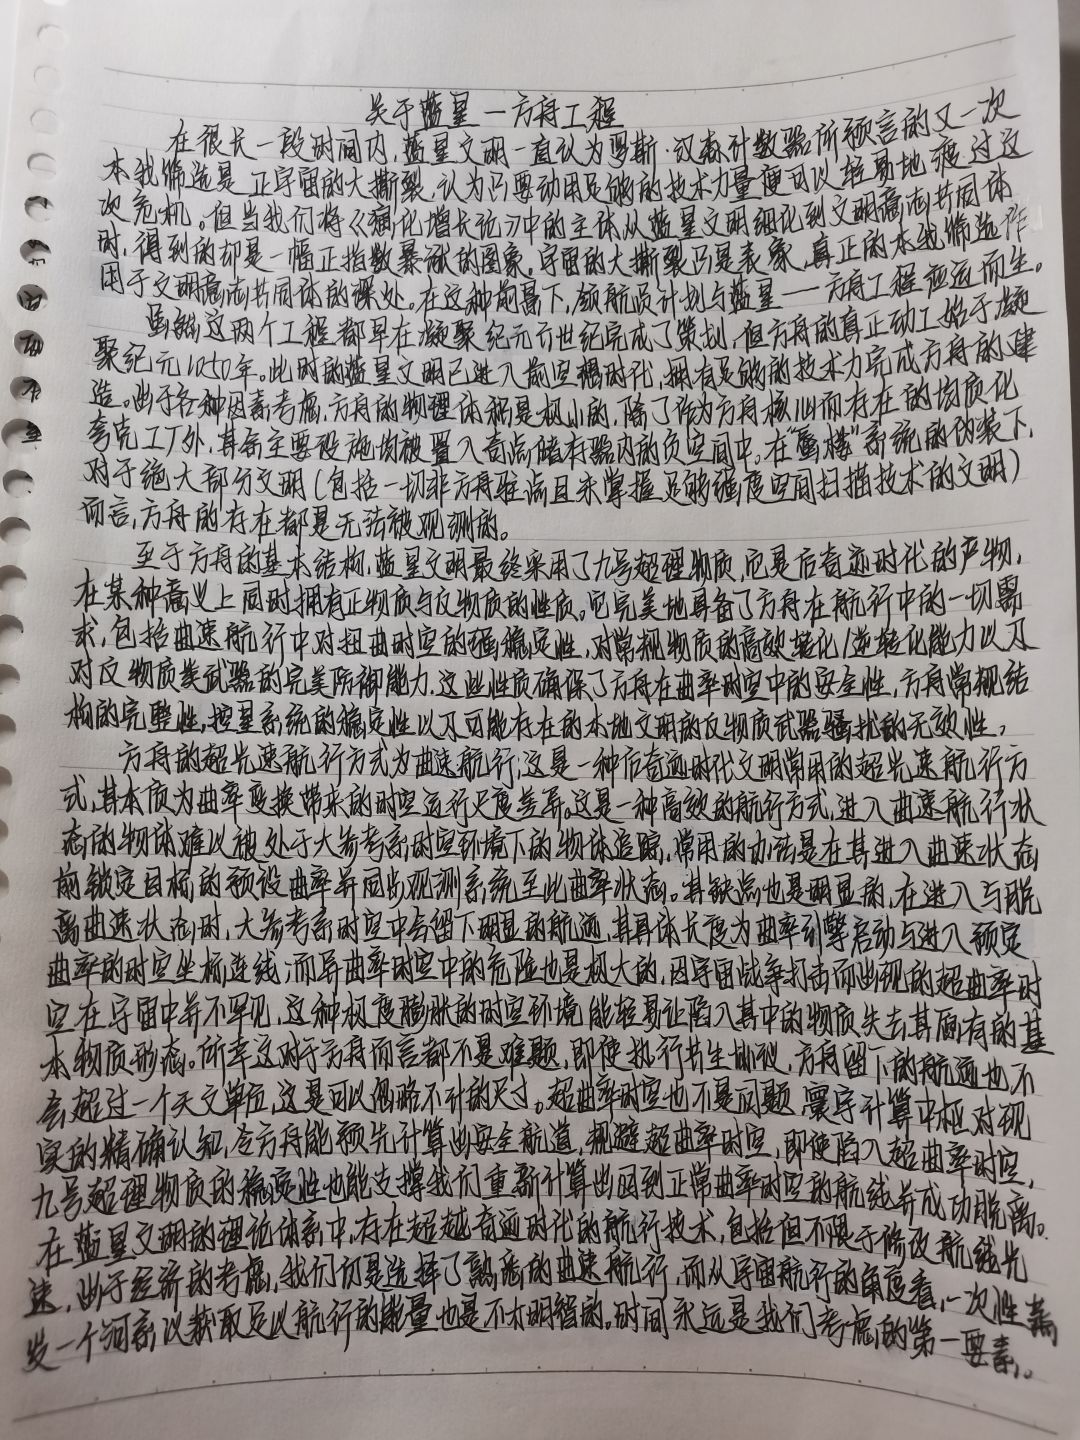 关于蓝星一方舟工程
在很长一段时间内,蓝星文明一直认为罗斯·汉森计数器所预言的又一次
本我筛选是正宇宙的大撕裂,认为只要动用足够的技术力量便可以轻易地渡过这
次危机。但当我们将《强化增长论》中的主体从蓝星文明细化到文明意志共同体
时,得到的却是一幅正指数暴涨的图象。宇宙的大撕裂只是表象,真正的本我筛选作
用于文明意志共同体的深处。在这种前景下,领航员计划与蓝星——方舟工程应运而生。
虽然这两个工程都早在凝聚纪元六世纪完成了策划,但方舟的真正动工始于凝
聚纪元1050年。此时的蓝星文明已进入前空想时代,拥有足够的技术力完成方舟的建
造。出于各种因素考虑,方舟的物理体积是极小的,除了作为方舟核心而存在的均质化
夸克工厂外,其余主要设施均被置入奇点储存器内的负空间中。在“蜃楼”系统的伪装下,
对于绝大部分文明(包括一切非方舟驻点且未掌握足够强度空间扫描技术的文明)
而言,方舟的存在都是无法被观测的。
至于方舟的基本结构,蓝星文明最终采用了九号超理物质,它是后奇迹时代的产物,
在某种意义上同时拥有正物质与反物质的性质。它完美地具备了方舟在航行中的一切需
求,包括曲速航行中对扭曲时空的强稳定性,对常规物质的高效转化/逆转化能力以及
对反物质类武器的完美防御能力.这些性质确保了方舟在曲率时空中的安全性,方舟常规结
构的完整性,控星系统的稳定性以及可能存在的本地文明的反物质武器骚扰的无效性。
方舟的超光速航行方式为曲速航行,这是一种后奇迹时代文明常用的超光速航行方
式,其本质为曲率变换带来的时空运行尺度差异。这是一种高效的航行方式,进入曲速航行状
态的物体难以被处于大参考系时空环境下的物体追踪,常用的办法是在其进入曲速状态
前锁定目标的预设曲率并同步观测系统至此曲率状态。其缺点也是明显的,在进入与脱
离曲速状态时,大参考系时空中会留下明显的航迹,其具体长度为曲率引擎启动与进入预定
曲率的时空坐标连线;而异曲率时空中的危险也是极大的,因宇宙战争打击而出现的超曲率时
空在宇宙中并不罕见,这种极度膨胀的时空环境能轻易让陷入其中的物质失去其固有的基
本物质形态。所幸这对于方舟而言都不是难题,即使执行共生协议,方舟留下的航迹也不
会超过一个天文单位,这是可以忽略不计的尺寸。超曲率时空也不是问题,寰宇计算中枢对现
实的精确认知,令方舟能预先计算出安全航道,规避超曲率时空,即使陷入超曲率时空,
九号超理物质的稳定性也能支撑我们重新计算出回到正常曲率时空的航线并成功脱离。
在蓝星文明的理论体系中,存在超越奇迹时代的航行技术,包括但不限于修改航线光
速,出于经济的考虑,我们仍是选择了熟悉的曲速航行,而从宇宙航行的角度看,一次性蒸
发一个河系以获取足以航行的能量也是不太明智的。时间永远是我们考虑的第一要素。